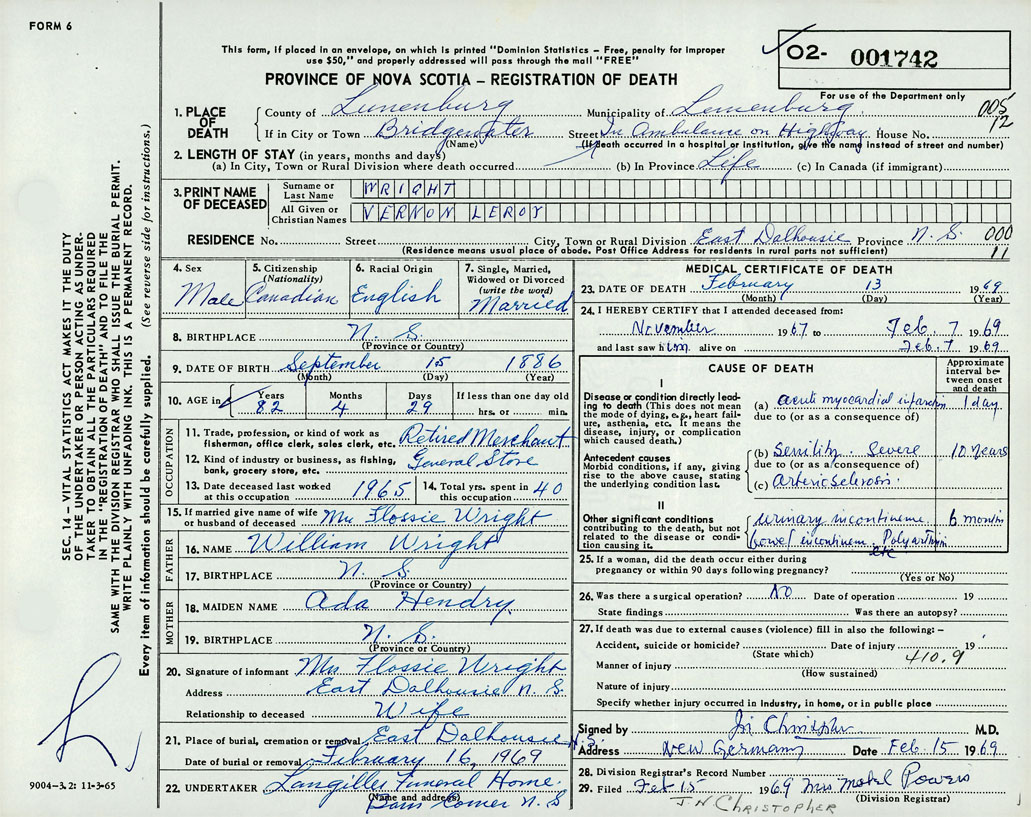 FORM 6
This form, if placed in an envelope, on which is printed "Dominion Statistics – Free, penalty for improper
use $50," and properly addressed will pass through the mail "FREE"
O2- 001742
For use of the Department only
PROVINCE OF NOVA SCOTIA – REGISTRATION OF DEATH
1. PLACE OF DEATH
County of Lunenburg Municipality of Lunenburg 005
If in City or Town Bridgewater Street In Ambulance on Highway House No. 12
(Name) (If death occurred in a hospital or institution, give the name instead of street and number)
2. LENGTH OF STAY (in years, months and days)
(a) In City, Town or Rural Division where death occurred (b) In Province Life (c) In Canada (if immigrant)
3. PRINT NAME OF DECEASED
Surname or Last Name WRIGHT
All Given or Christian Names VERNON LEROY
RESIDENCE No. Street City, Town or Rural Division East Dalhousie Province N. S. 000
(Residence means usual place of abode. Post Office Address for residents in rural parts not sufficient) 11
4. Sex Male
5. Citizenship (Nationality) Canadian
6. Racial Origin English
7. Single, Married, Widowed or Divorced (write the word) Married
8. BIRTHPLACE N. S.
(Province or Country)
9. DATE OF BIRTH September 15 1886
(Month) (Day) (Year)
10. AGE in Years 82 Months 4 Days 29 If less than one day old hrs. or min.
OCCUPATION
11. Trade, profession, or kind of work as fisherman, office clerk, sales clerk, etc. Retired Merchant
12. Kind of industry or business, as fishing, bank, grocery store, etc. General Store
13. Date deceased last worked at this occupation 1965
14. Total yrs. spent in this occupation 40
15. If married give name of wife or husband of deceased Mrs Flossie Wright
FATHER
16. NAME William Wright
17. BIRTHPLACE N. S.
(Province or Country)
MOTHER
18. MAIDEN NAME Ada Hendry
19. BIRTHPLACE N. S.
(Province or Country)
20. Signature of informant Mrs Flossie Wright
Address East Dalhousie N. S.
Relationship to deceased Wife
21. Place of burial, cremation or removal East Dalhousie N. S.
Date of burial or removal February 16, 1969
22. UNDERTAKER Langilles Funeral Home
(Name and address)
Corner N. S
MEDICAL CERTIFICATE OF DEATH
23. DATE OF DEATH February 13 1969
(Month) (Day) (Year)
24. I HEREBY CERTIFY that I attended deceased from:
November 1967 to Feb. 7 1969
and last saw him alive on Feb. 7 1969
CAUSE OF DEATH
Approximate interval between onset and death
I
Disease or condition directly leading to death (This does not mean the mode of dying, e.g., heart failure, asthenia, etc. It means the disease, injury, or complication which caused death.)
(a) acute myocardial infarction 1 day
due to (or as a consequence of)
Antecedent causes
Morbid conditions, if any, giving rise to the above cause, stating the underlying condition last.
(b) Senility. Severe 10 Years
due to (or as a consequence of)
(c) Arteriosclerosis.
II
Other significant conditions
contributing to the death, but not related to the disease or condition causing it.
urinary incontinence 6 months
bowel incontinence Polyarthritis
etc
25. If a woman, did the death occur either during
pregnancy or within 90 days following pregnancy?
(Yes or No)
26. Was there a surgical operation? No Date of operation 19
State findings Was there an autopsy?
27. If death was due to external causes (violence) fill in also the following: –
Accident, suicide or homicide? Date of injury 19
(State which) 410.9
Manner of injury
(How sustained)
Nature of injury
Specify whether injury occurred in industry, in home, or in public place
Signed by J N Christopher M.D.
Address New Germany Date Feb. 15 1969
28. Division Registrar's Record Number
29. Filed Feb 15 1969 Mrs Powers
(Division Registrar)
J N CHRISTOPHER
SEC. 14 – VITAL STATISTICS ACT MAKES IT THE DUTY
OF THE UNDERTAKER OR PERSON ACTING AS UNDER-
TAKER TO OBTAIN ALL THE PARTICULARS REQUIRED
IN THE "REGISTRATION OF DEATH" AND TO FILE THE
SAME WITH THE DIVISION REGISTRAR WHO SHALL ISSUE THE BURIAL PERMIT.
WRITE PLAINLY WITH UNFADING INK. THIS IS A PERMANENT RECORD.
Every item of information should be carefully supplied. (See reverse side for instructions.)
9004-3.2: 11-3-65